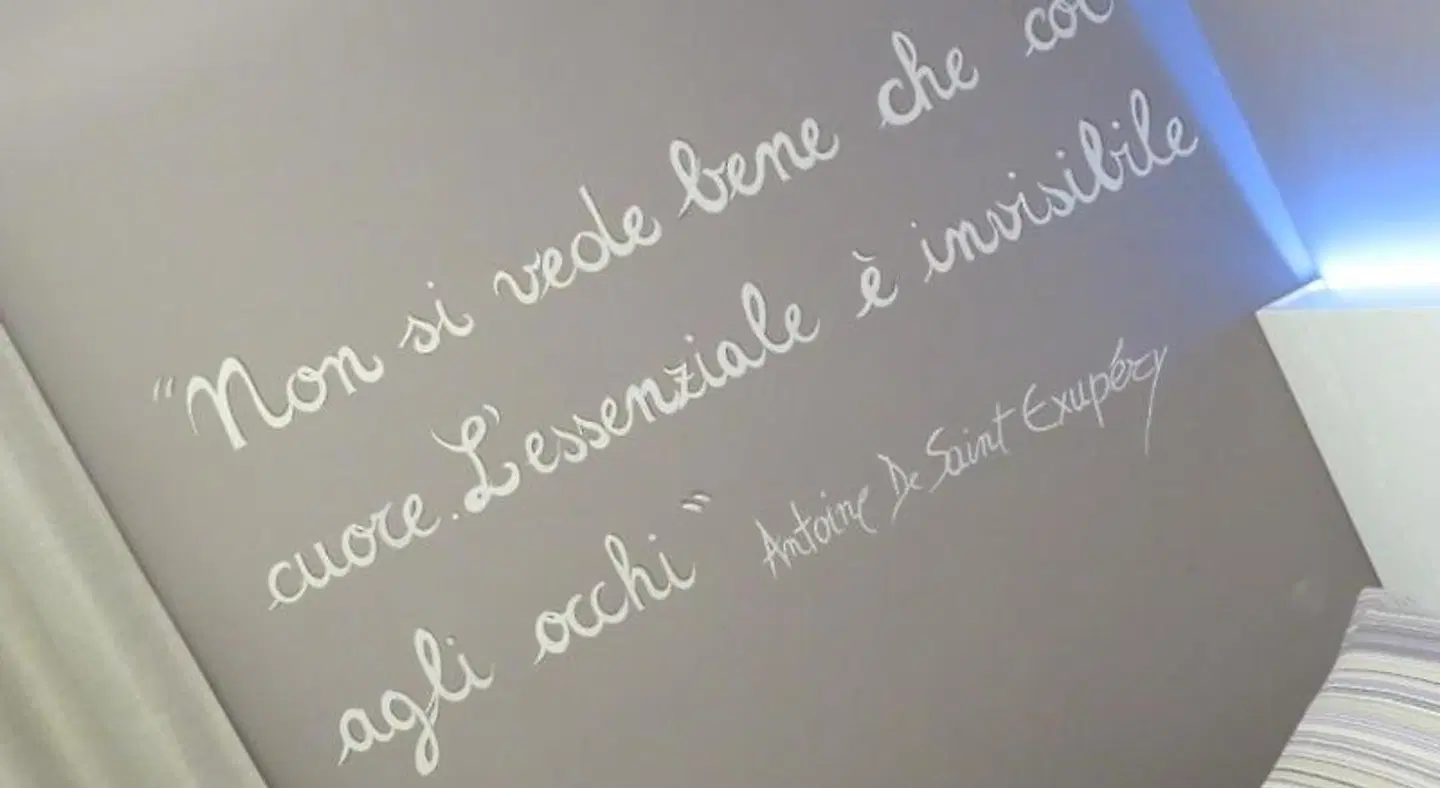 "Non si vede bene che col
cuore. L'essenziale è invisibile
agli occhi"
Antoine De Saint Exupéry